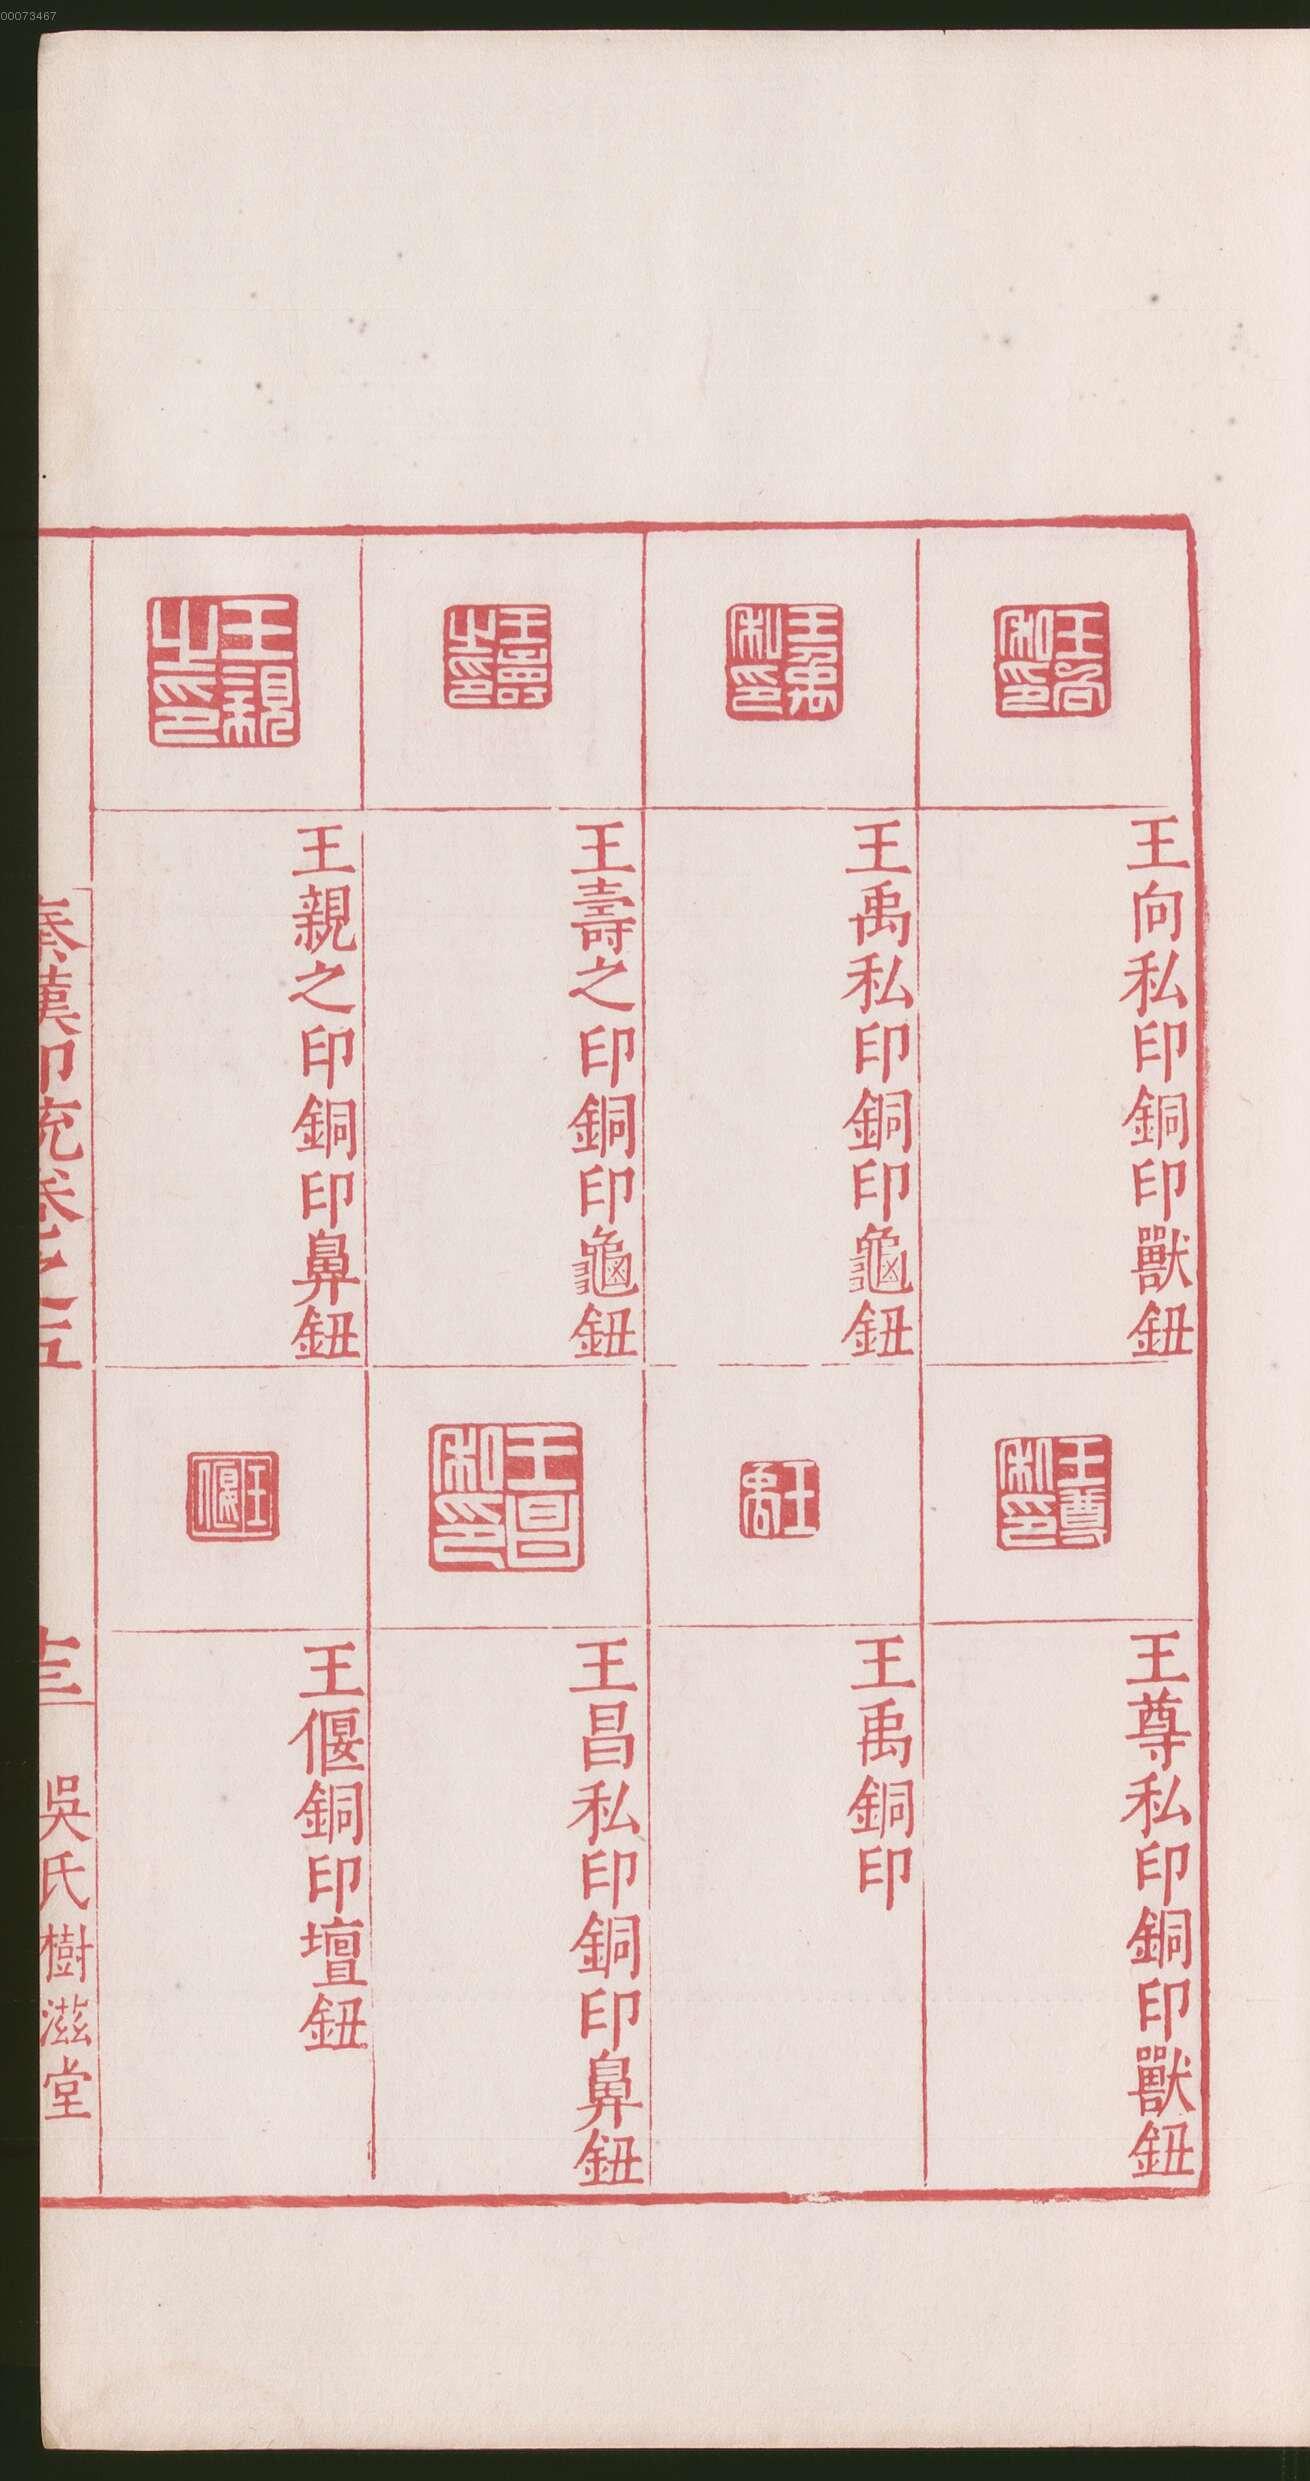 00073467
王向私印
王向私印銅印獸鈕
王尊私印
王尊私印銅印獸鈕
王禹私印
王禹私印銅印龜鈕
王禹
王禹銅印
王壽之印
王壽之印銅印龜鈕
王昌私印
王昌私印銅印鼻鈕
王親之印
王親之印銅印鼻鈕
王偃
王偃銅印壇鈕
秦漢印統卷之五
吳氏樹滋堂